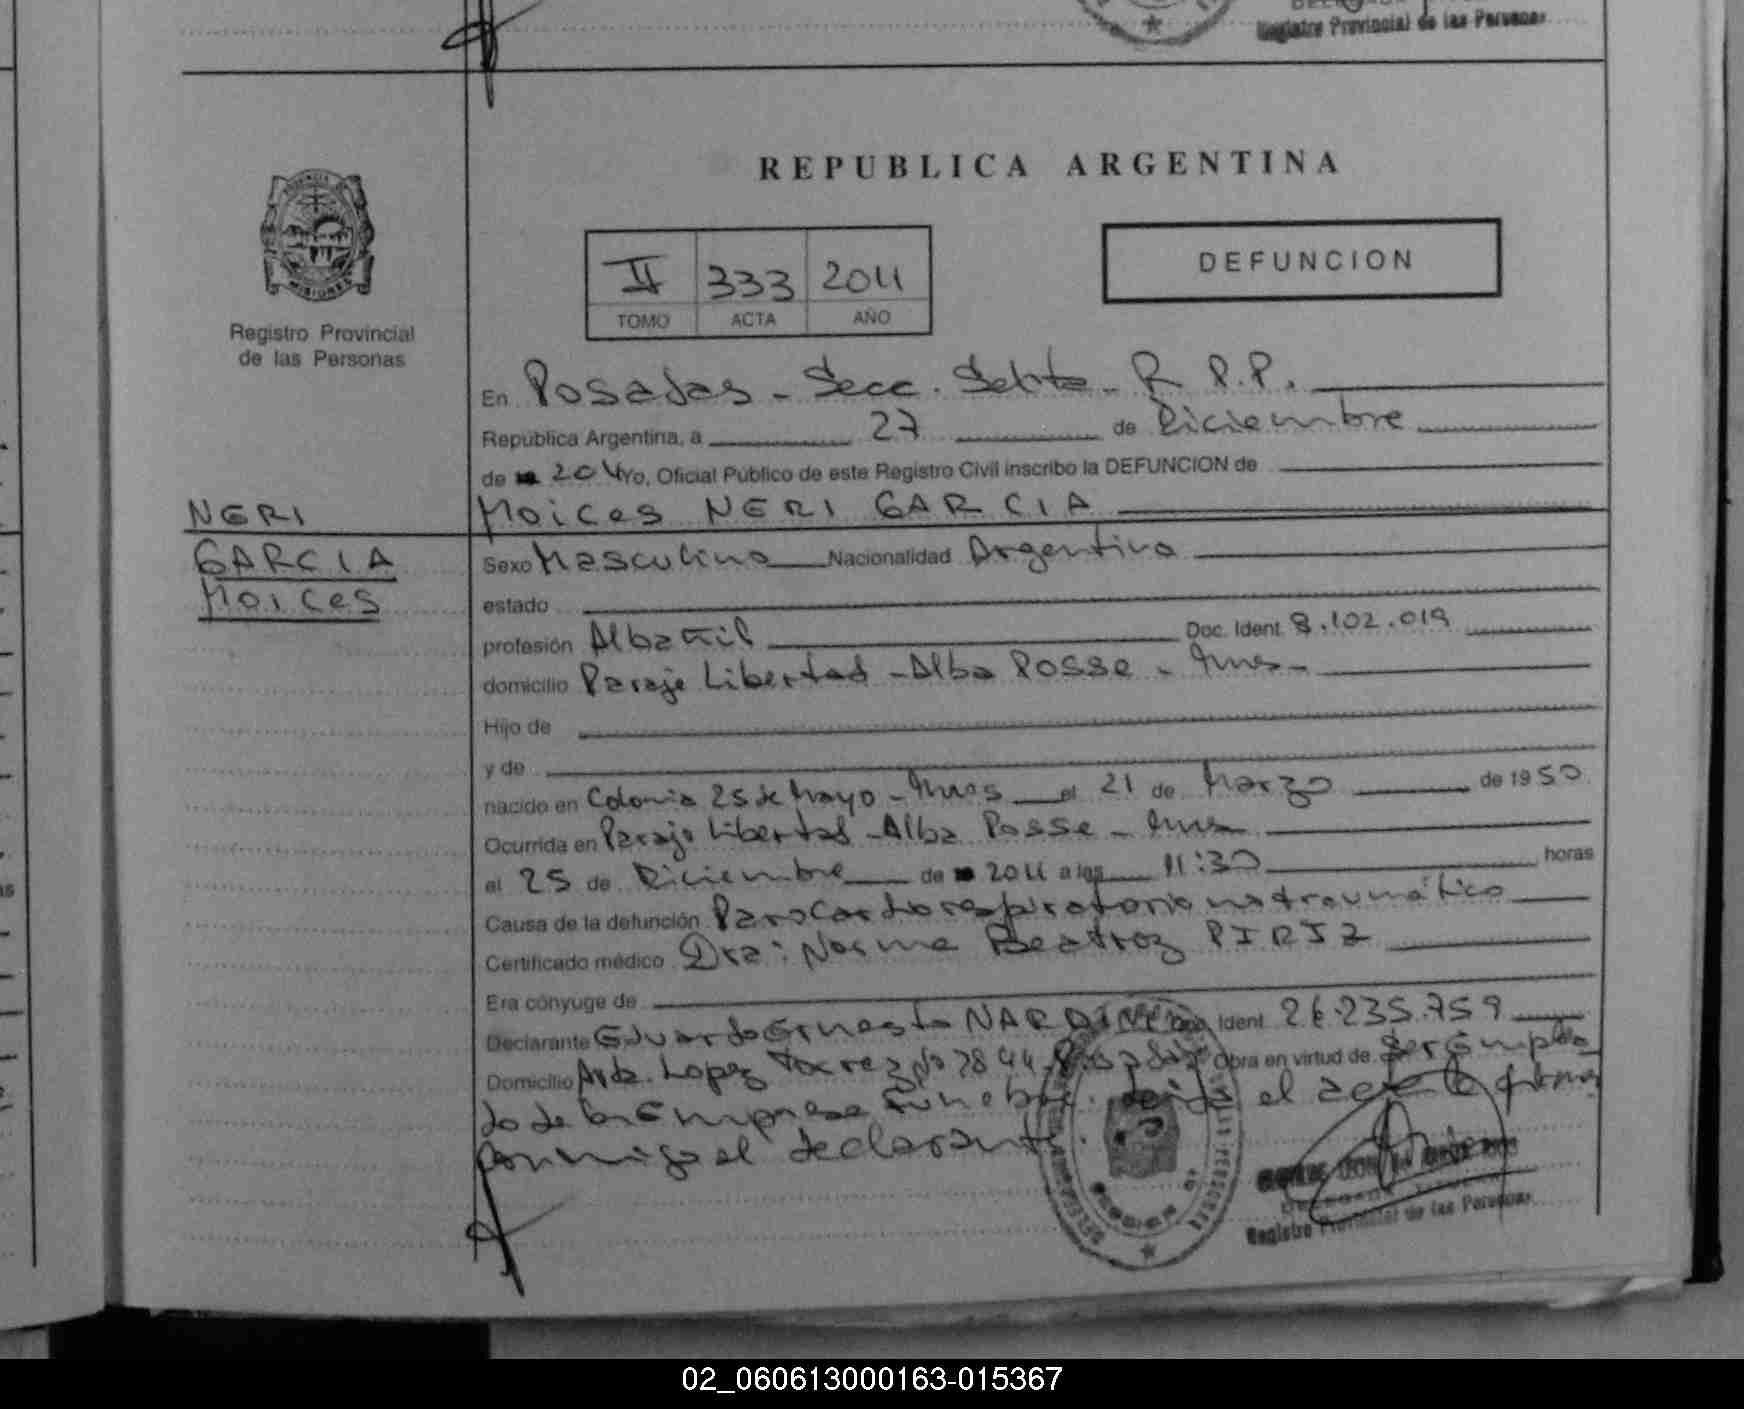 Registro Provincial de las Personas
REPUBLICA ARGENTINA
MISIONES
Registro Provincial
de las Personas
II 333 2011
TOMO ACTA AÑO
DEFUNCION
En Posadas - Secc. Sexta - R.P.P.
República Argentina, a 27 de Diciembre
de 2011 Yo, Oficial Público de este Registro Civil inscribo la DEFUNCION de
Moices NERI GARCIA
NERI
GARCIA
Moices
Sexo Masculino Nacionalidad Argentina
estado
profesión Albañil Doc. Ident. 8.102.019
domicilio Paraje Libertad - Alba Posse - Mnes -
Hijo de
y de
nacido en Colonia 25 de Mayo - Mnes el 21 de Marzo de 1950
Ocurrida en Paraje Libertad - Alba Posse - Mnes
el 25 de Diciembre de 2011 a las 11:30 horas
Causa de la defunción Paro Cardiorespiratorio no traumático
Certificado médico Dra: Norma Beatriz PIRIZ
Era cónyuge de
Declarante Eduardo Ernesto NARDINI Doc. Ident. 26.235.759
Domicilio Avda. Lopez Torrez Nº 2844 Posadas Obra en virtud de Ser Emplea
do de la Empresa Funebre. Leída el acta la firma
conmigo el declarante.
Registro Provincial de las Personas
02_060613000163-015367